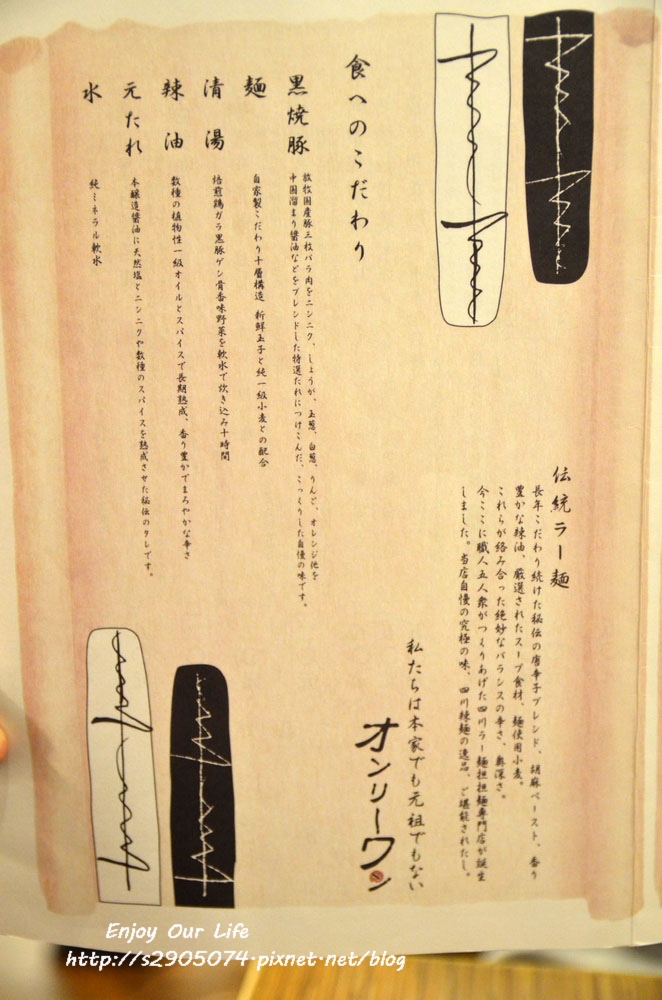 伝統ラー麺
長年こだわり続けた秘伝の唐辛子ブレンド、胡麻ペースト、香り
豊かな辣油、厳選されたスープ食材、麺使用小麦。
これらが絡み合った絶妙なバランスの辛さ、奥深さ。
今ここに職人五人衆がつくりあげた四川ラー麺担担麺専門店が誕生
しました。当店自慢の究極の味、四川辣麺の逸品、ご堪能されたし。
私たちは本家でも元祖でもない
オンリーワン
食へのこだわり
黒焼豚
放牧国産豚三枚バラ肉をニンニク、しょうが、玉葱、白葱、りんご、オレンジ他を
中国溜まり醤油などをブレンドした特選たれにつけこんだ、こっくりした自慢の味です。
麺
自家製こだわり十層構造 新鮮玉子と純一級小麦との配合
清湯
焙煎鶏ガラ黒豚ゲン骨香味野菜を軟水で炊き込み十時間
辣油
数種の植物性一級オイルとスパイスで長期熟成、香り豊かでまろやかな辛さ
元たれ
本醸造醤油に天然塩とニンニクや数種のスパイスを熟成させた秘伝のタレです。
水
純ミネラル軟水
Enjoy Our Life
http://s2905074.pixnet.net/blog